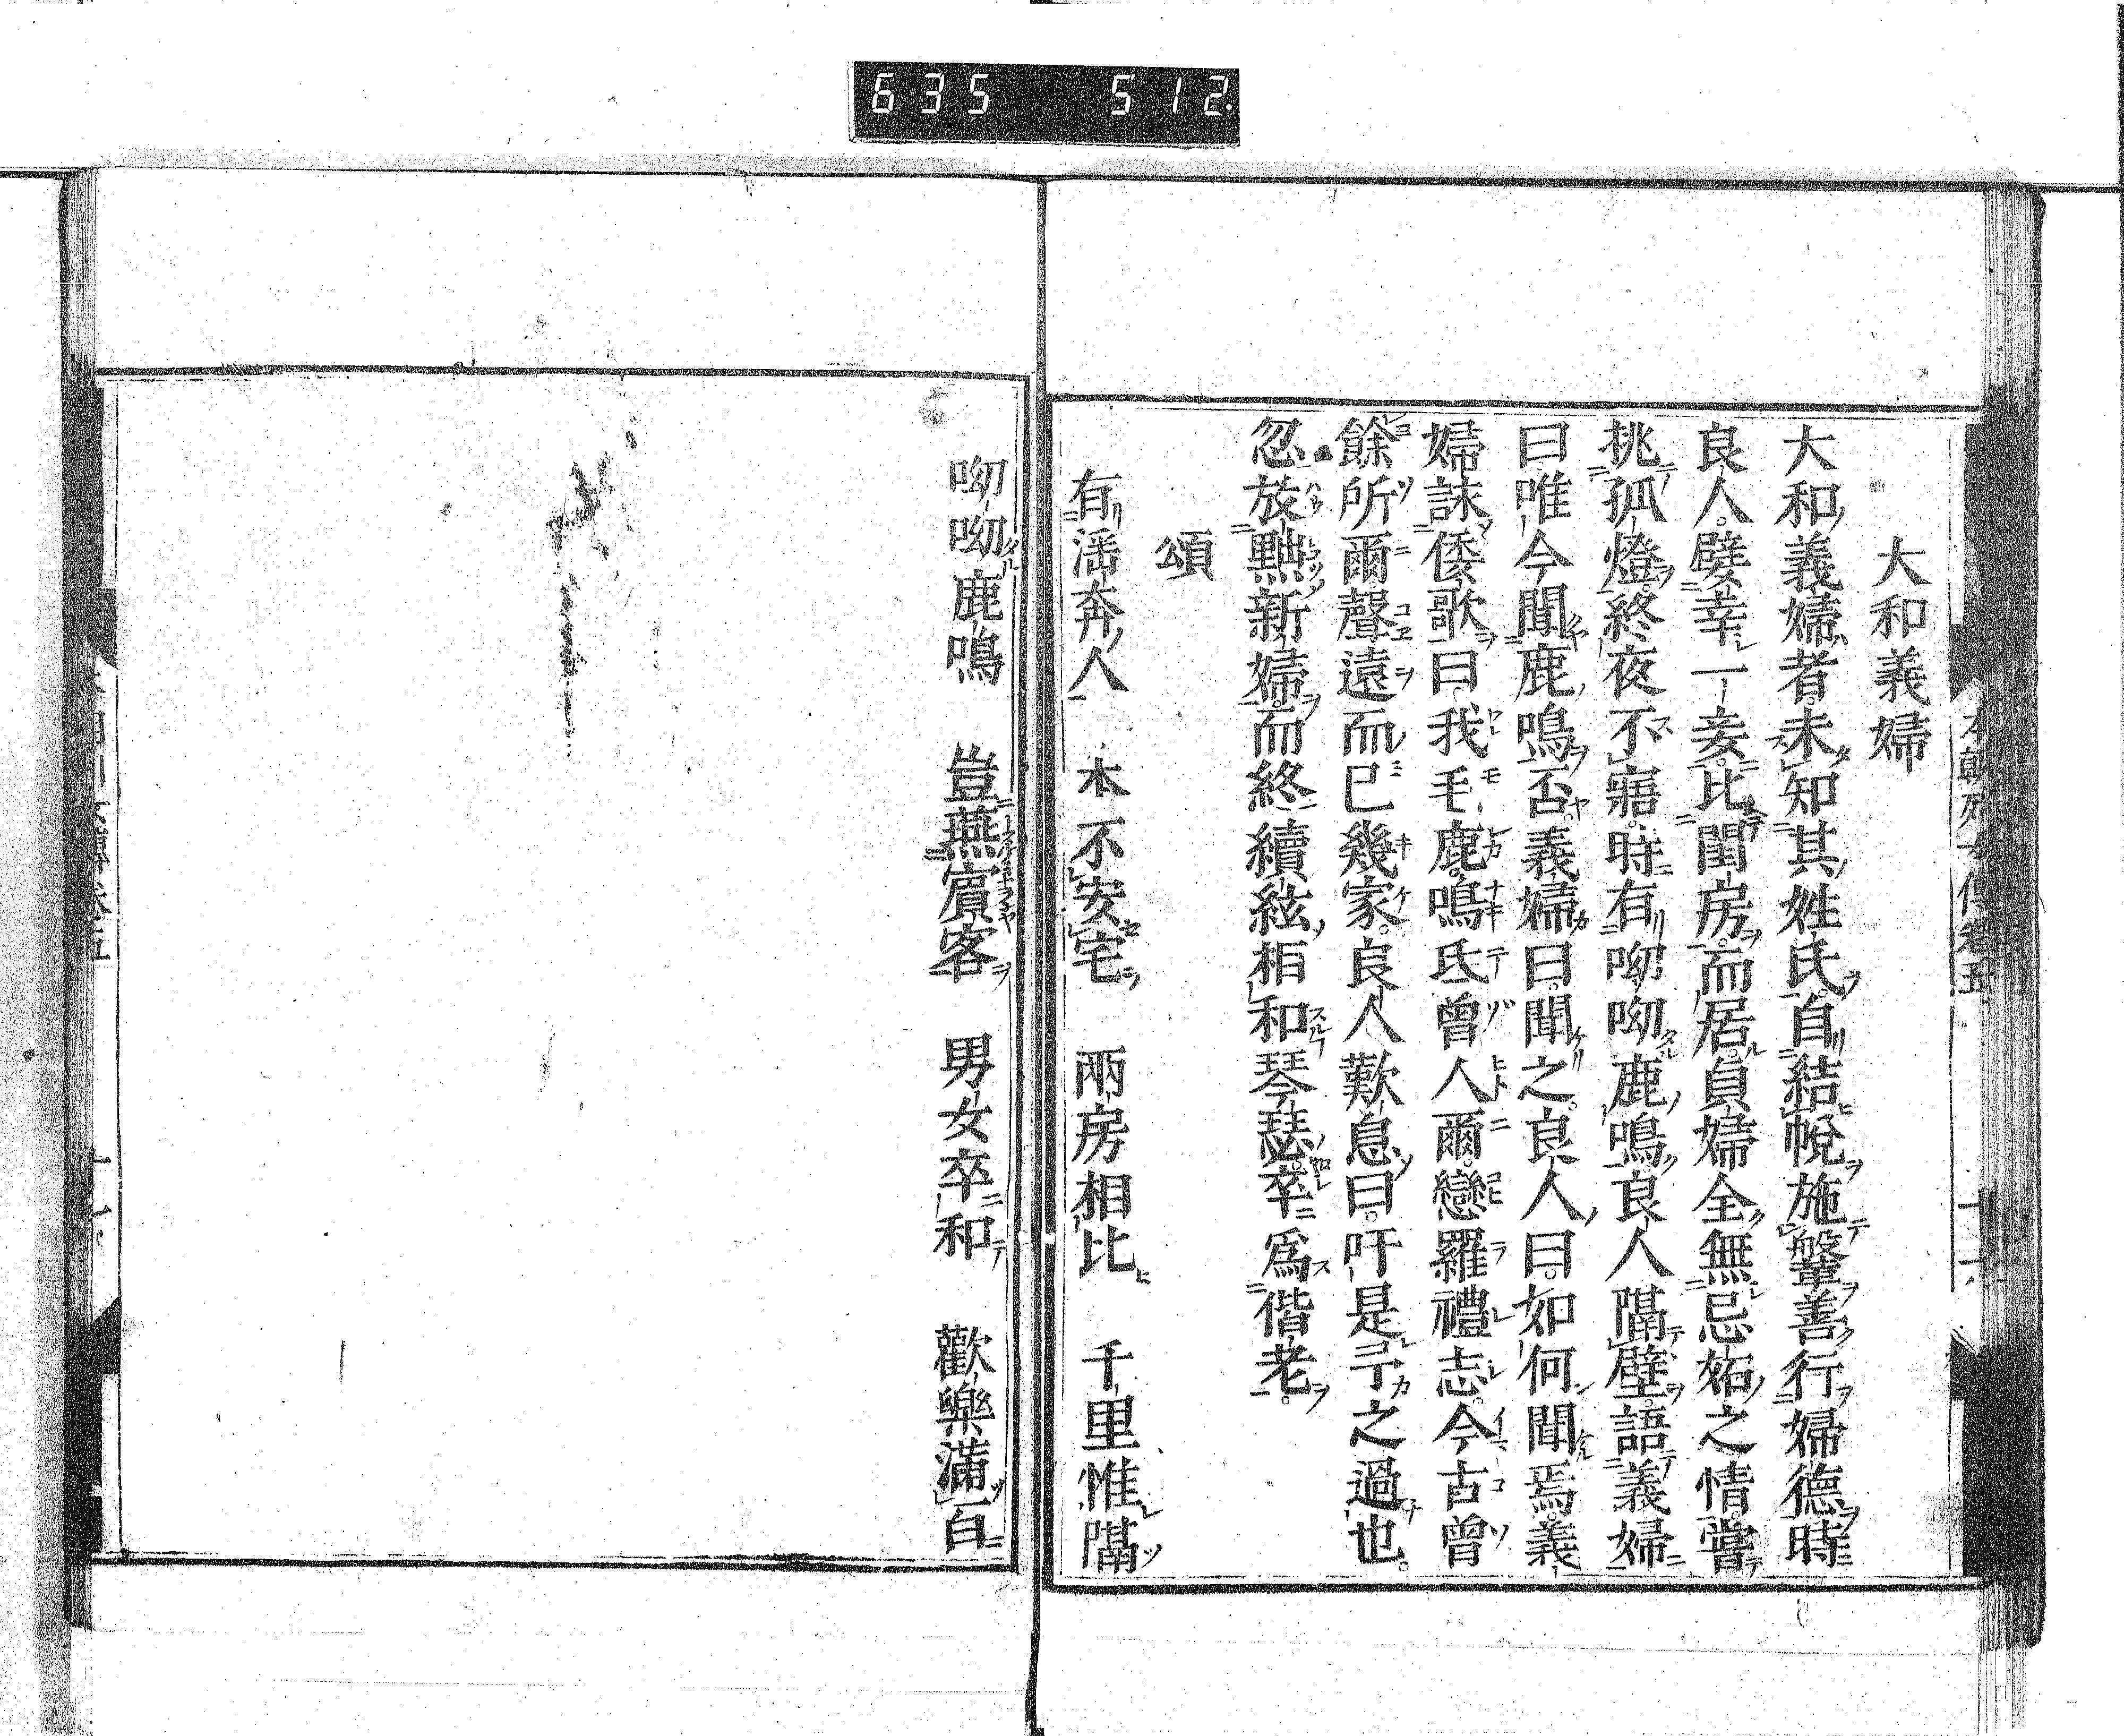 635 512.
大和義婦
大和義婦者。未知其姓氏。自結帨施鞶善行婦德時
良人。嬖幸一妾。比閨房。而居。貞婦全無忌妬之情。嘗
挑孤燈。終夜不寤。時有呦呦鹿鳴。良人隔壁。語義婦
曰唯今聞鹿鳴否。義婦曰。聞之。良人曰。如何聞焉。義
婦詠倭歌曰。我毛鹿。鳴氐曾人爾。戀羅禮志。今古曾
餘所爾。聲遠而已幾家。良人歎息曰。吁是予之過也。
忽放黜新婦。而終續絃相和琴瑟。卒爲偕老。
頌
有滛奔人 本不安宅 兩房相比 千里惟隔
呦呦鹿鳴 豈燕賓客 男女卒和 歡樂滿百
本朝列女傳卷五 十六